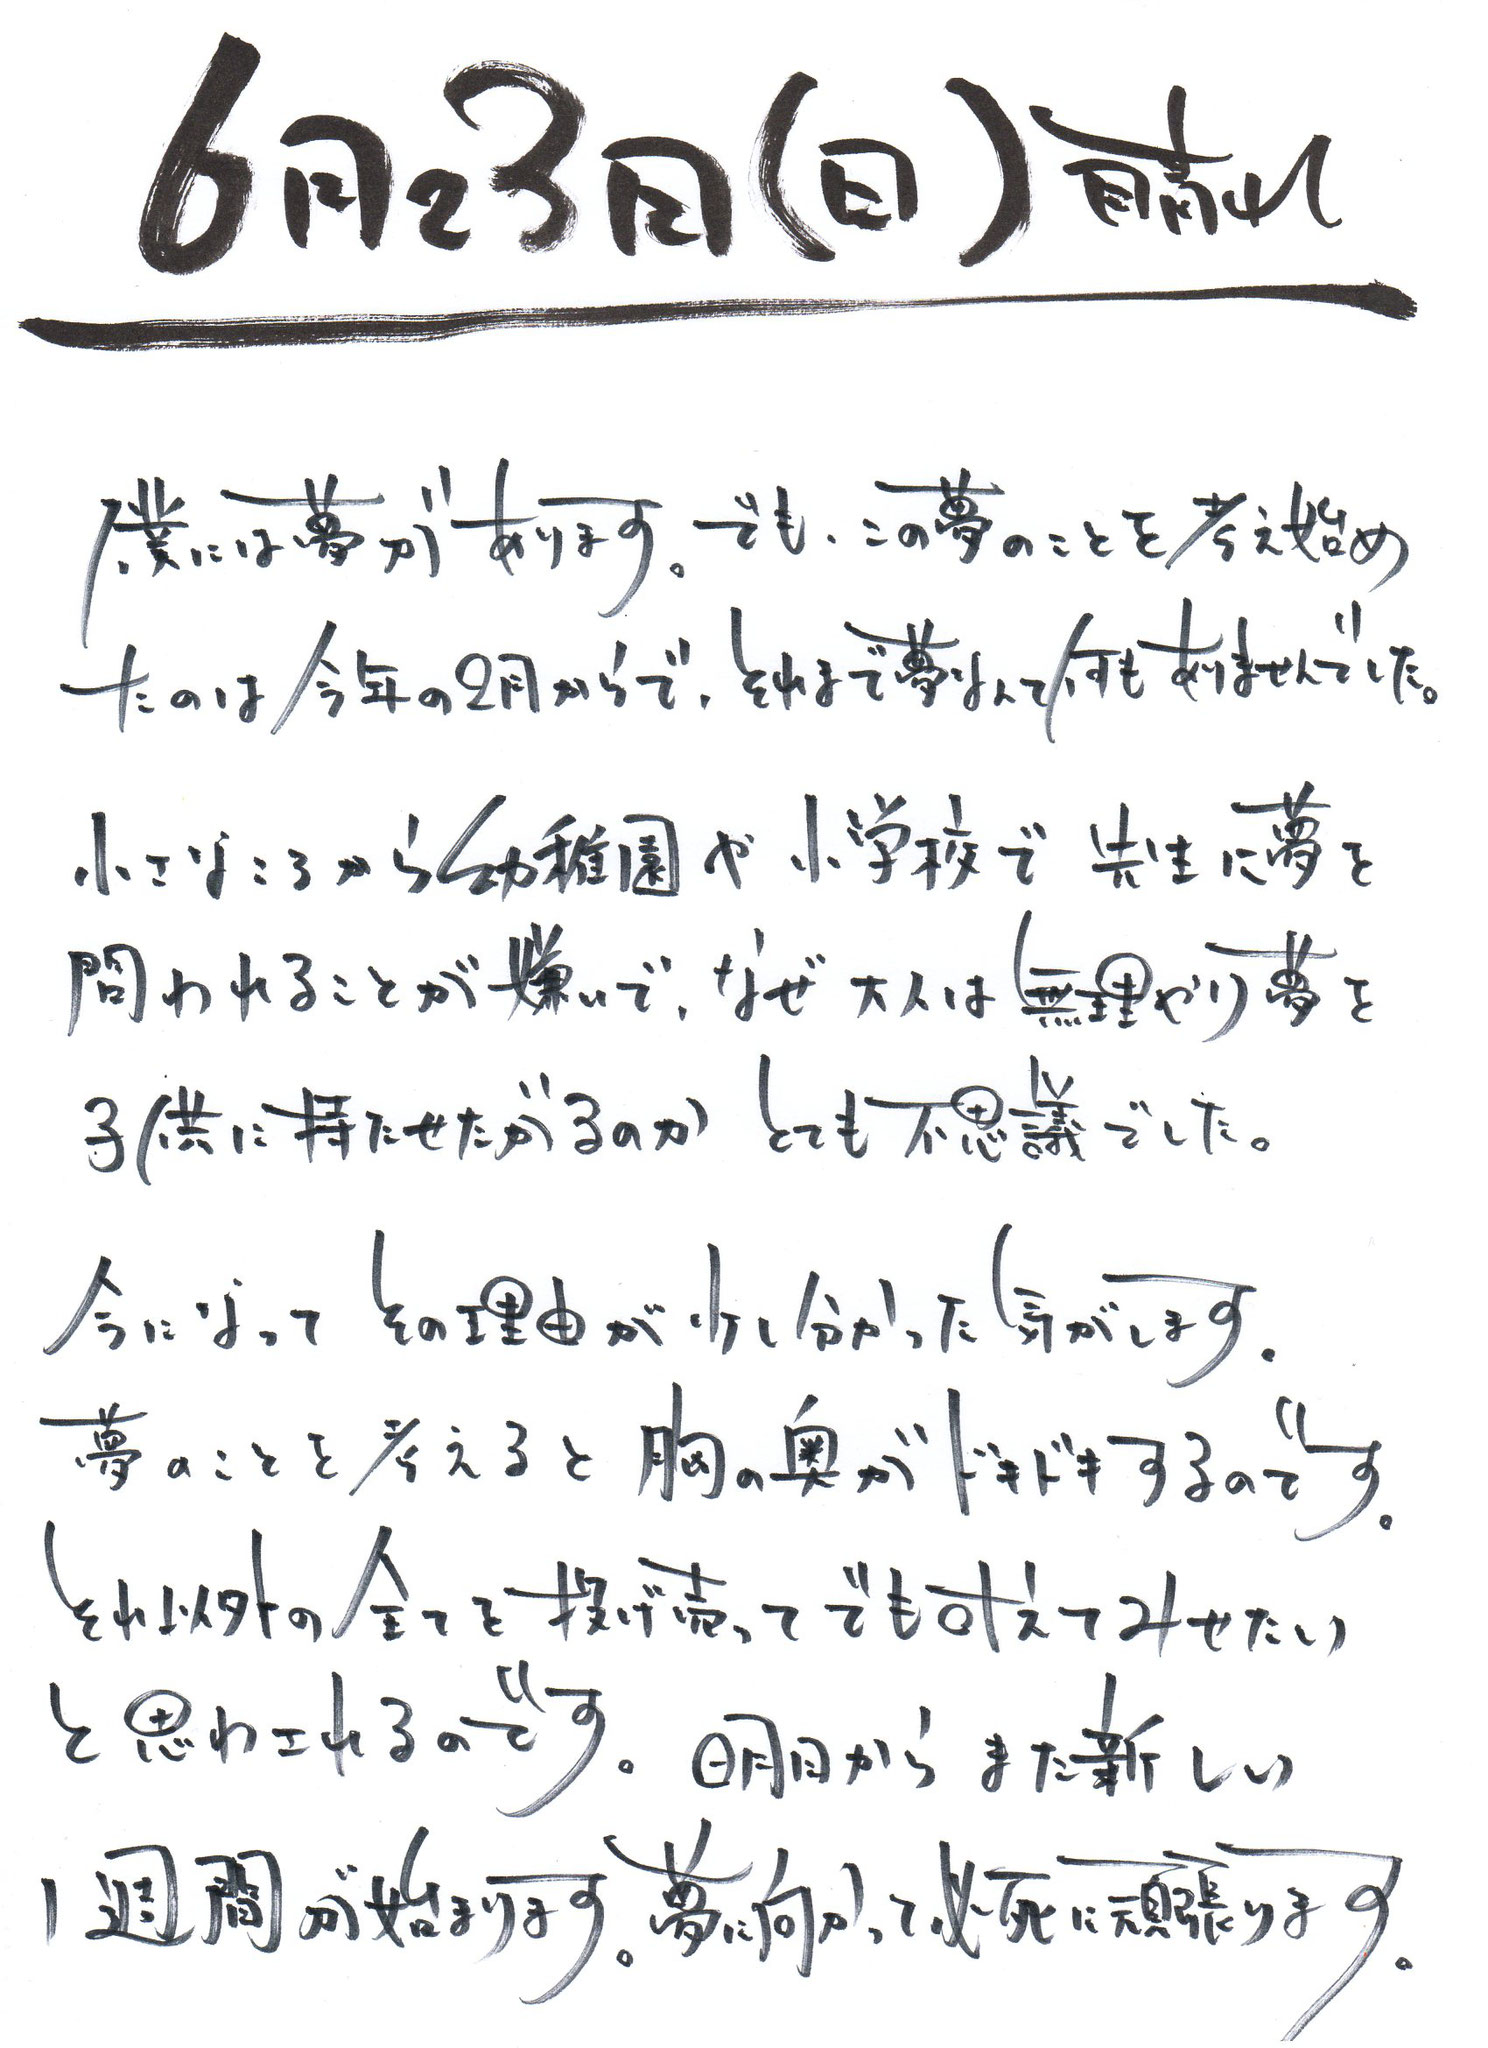 6月23日(日)晴れ
僕には夢があります。でも、この夢のことを考え始め
たのは今年の2月からで、それまで夢なんて何もありませんでした。
小さなころから幼稚園や小学校で先生に夢を
問われることが嫌いで、なぜ大人は無理やり夢を
子供に持たせたがるのかとても不思議でした。
今になってその理由が少し分かった気がします。
夢のことを考えると胸の奥がドキドキするのです。
それ以外の全てを投げ売ってでも叶えてみせたい
と思わされるのです。明日からまた新しい
1週間が始まります。夢に向かって必死に頑張ります。